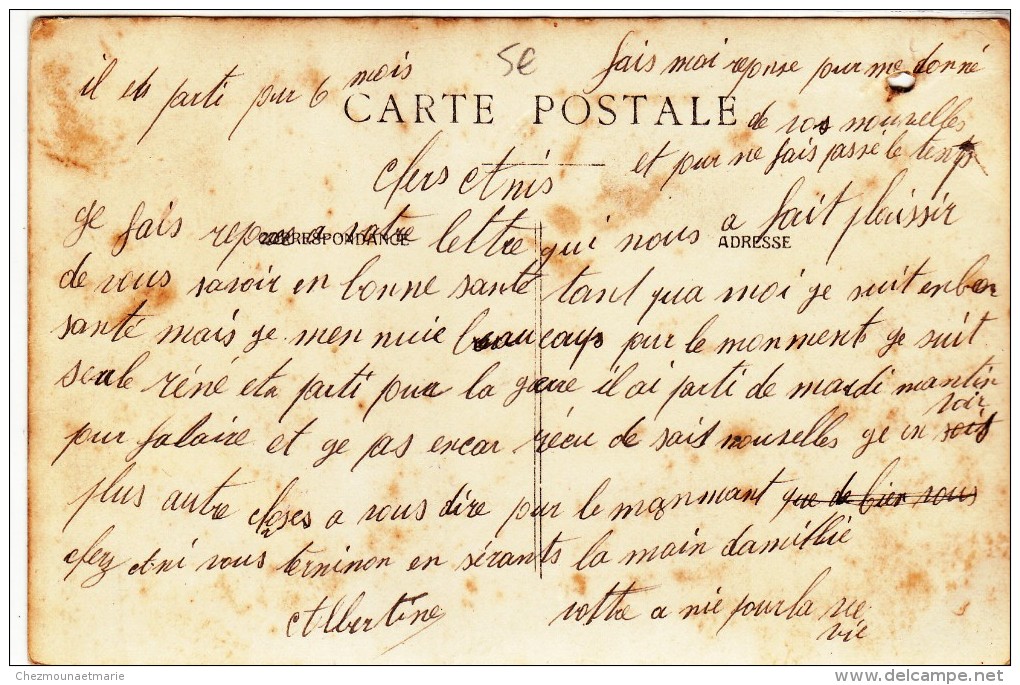 5e
il et parti pur 6 mois
fais moi reponse pur me donné
CARTE POSTALE
de vos nouvelles
et pur me fais passé le temps
chers Amis
CORRESPONDANCE
ADRESSE
Je fais reponse a votre lettre qui nous a fait plaissir
de vous savoir en bonne santé tant qua moi je suit en bon
santé mais je men nuie beaucoup pur le monment je suit
seule réné et parti pur la gerre il ai parti de mardi mantin
pur falaire et ge pas encor récu de sait nouvelles ge en voir
plus autre choses a vous dire pour le monmant que de bien vous
cherz Ami vous terninon en sérants la main damillie
Albertine
vottre a mie pour la vie
vie
Chezmounaetmarie
www.delcampe.net